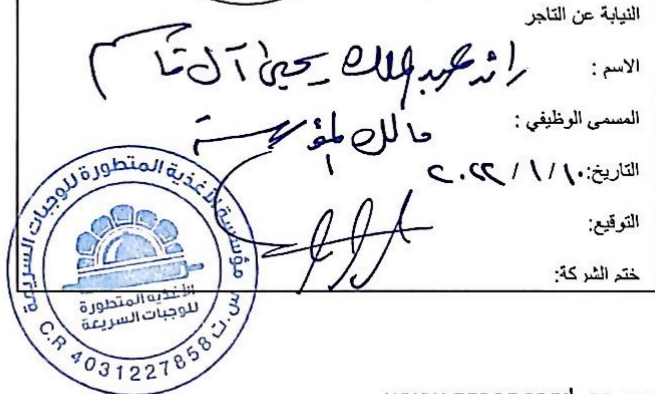 النيابة عن التاجر
الاسم : رائد عبدالملك يحيى آل قاسم
المسمى الوظيفي : مالك المؤسسة
التاريخ: ٢٠٢٢ / ١ / ١٠
التوقيع:
ختم الشركة:
مؤسسة الأغذية المتطورة للوجبات السريعة
الأغذية المتطورة
للوجبات السريعة
C.R 4031227858 س.ت